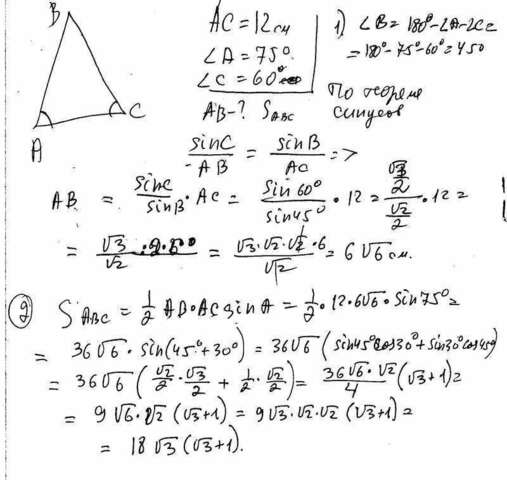 B
A
C
AC = 12 см
∠A = 75°
∠C = 60°
AB - ? S_ABC
1) ∠B = 180° - ∠A - ∠C =
= 180° - 75° - 60° = 450
По теореме
синусов
sinC/AB = sinB/AC =>
AB = sinC/sinB · AC = sin60°/sin45° · 12 = (√3/2)/(√2/2) · 12 =
= √3/√2 = √3·√2·√2·6/√2 = 6√6 см.
2) S_ABC = 1/2 AB·AC sinA = 1/2 · 12·6√6 · sin75° =
= 36√6 · sin(45°+30°) = 36√6 (sin45°cos30° + sin30°cos450)
= 36√6 (√2/2 · √3/2 + 1/2 · √2/2) = 36√6·√2/4 (√3+1) =
= 9√6·√2 (√3+1) = 9√3·√2·√2 (√3+1) =
= 18√3 (√3+1).